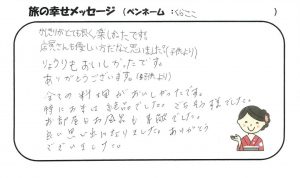 旅の幸せメッセージ （ペンネーム：くらここ ）
かざりがとても良く、楽しかったです。
店員さんも優しい方だなと思いました？(子供より)
りょうりもおいしかったです。
ありがとうございます。(子供より)
全ての料理がおいしかったです。
特にお米は絶品でした。でも お腹でした。
お部屋もお風呂も素敵でした。
良い思い出になりました。ありがとう
ございました。